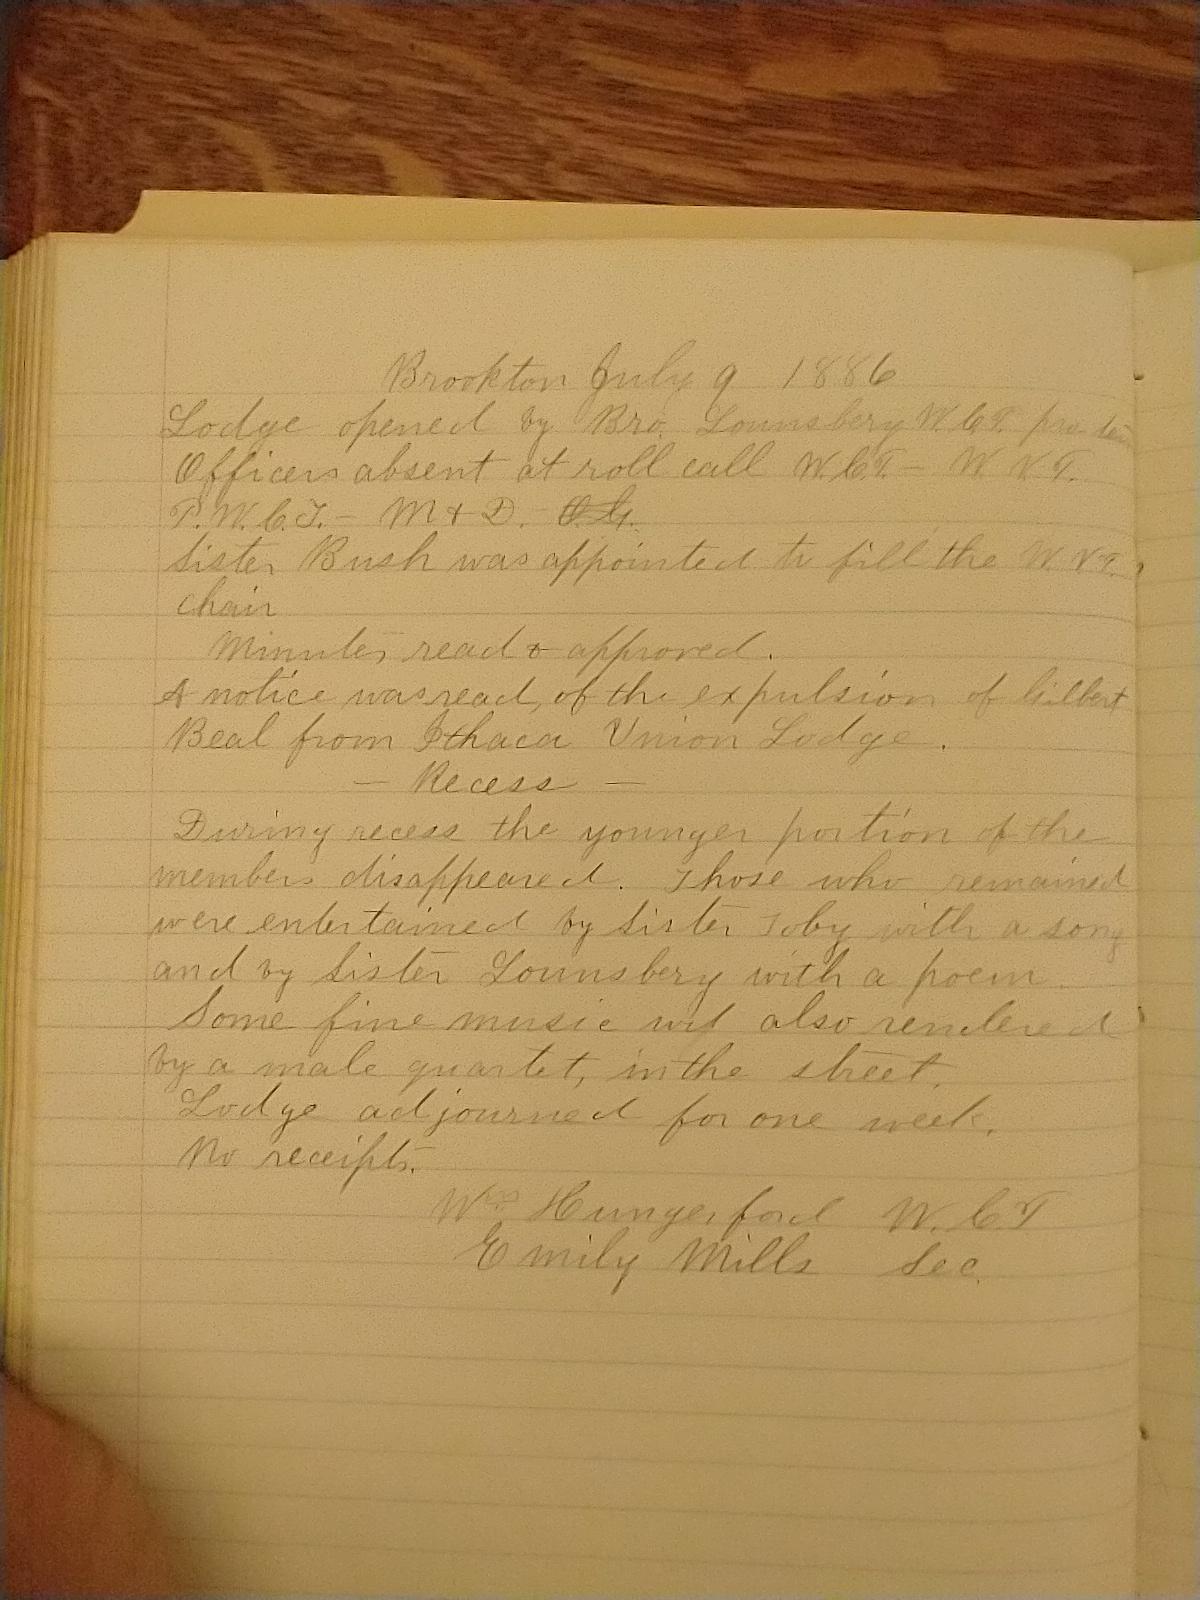 Brookton July 9 1886
Lodge opened by Bro. Lounsbery W.C.T. pro tem
Officers absent at roll call W.C.T. – W.V.T.
P.W.C.T. – M & D. – O.G.
Sister Bush was appointed to fill the W.V.T.
chair
Minutes read & approved.
A notice was read, of the expulsion of Gilbert
Beal from Ithaca Union Lodge.
— Recess —
During recess the younger portion of the
members disappeared. Those who remained
were entertained by Sister Toby with a song
and by Sister Lounsbery with a poem.
Some fine music was also rendered
by a male quartet, in the street.
Lodge adjourned for one week.
No receipts.
Wm Hungerford W.C.T
Emily Mills Sec.